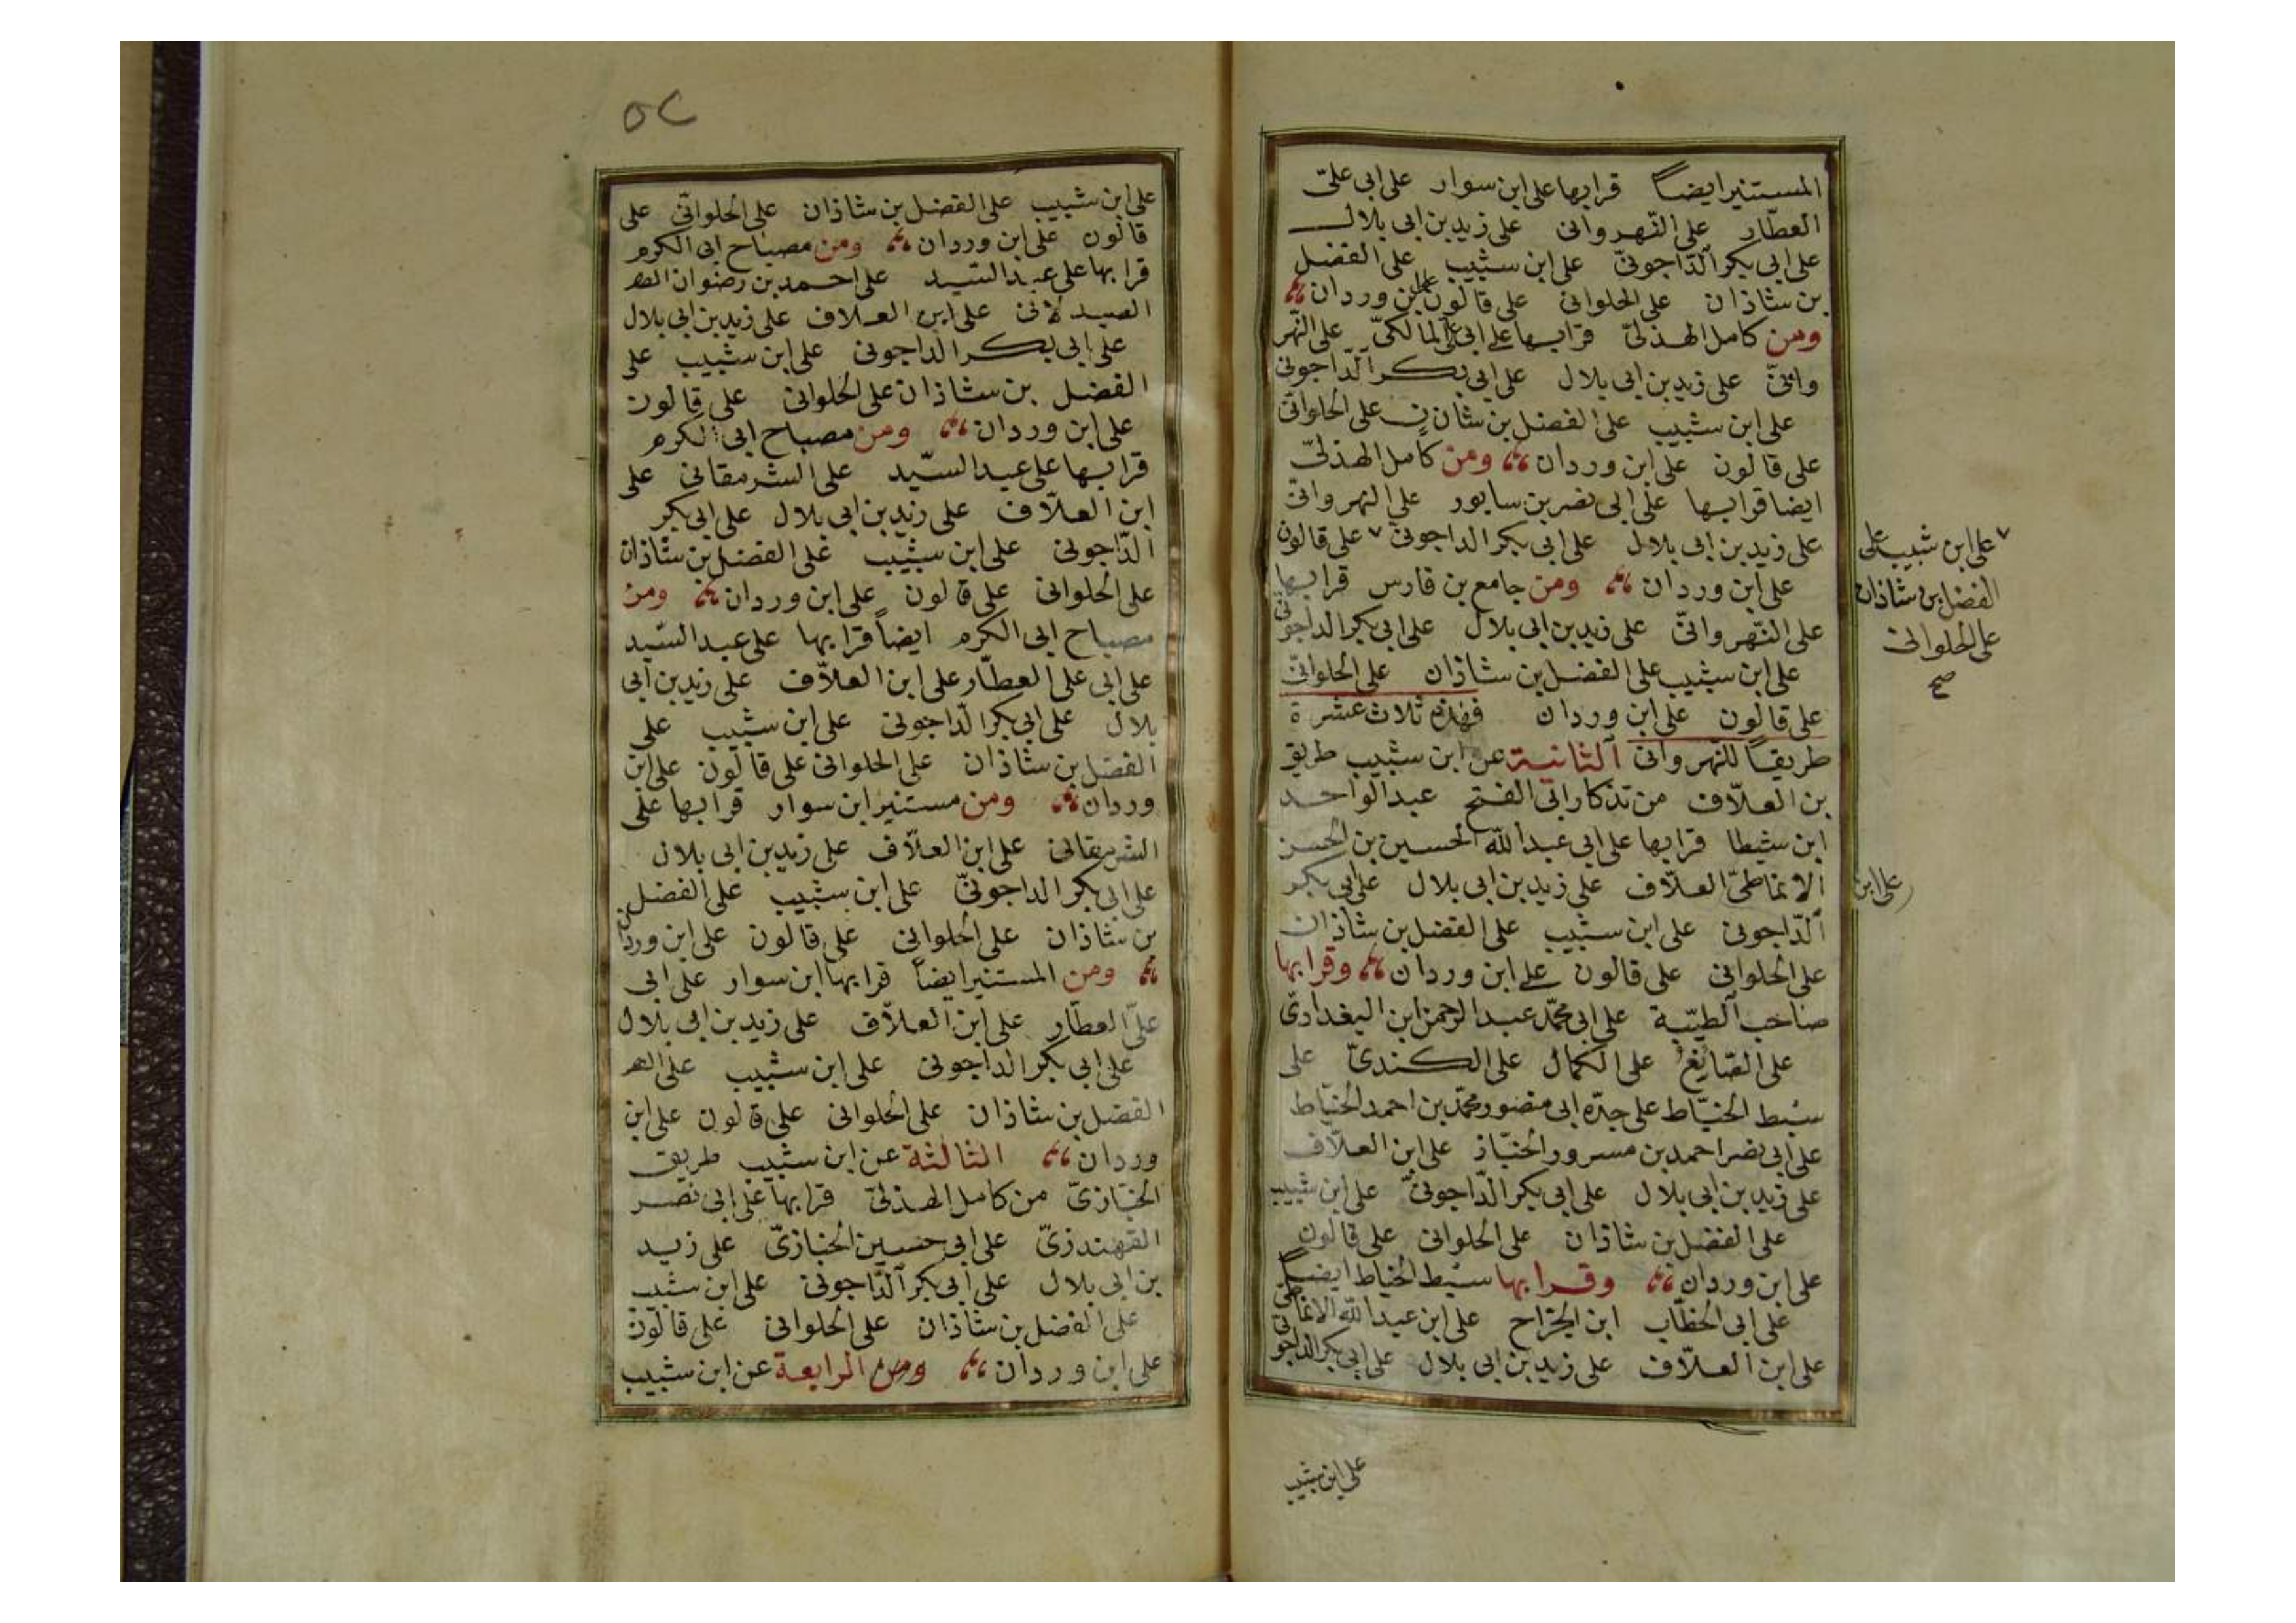 المستنير ايضاً قرا بها على ابن سوار على ابى علىّ
العطّار على النّهروانى على زيد بن ابى بلال
على ابى بكر الدّاجونىّ على ابن شبيب على الفضل
بن شاذان على الحلوانى على قالون على ابن وردان
ومن كامل الهذلىّ قرا بها على ابى على المالكىّ على النّهر
وانىّ على زيد بن ابى بلال على ابى بكر الدّاجونى
على ابن شبيب على الفضل بن شاذان على الحلوانىّ
على قالون على ابن وردان ومن كامل الهذلىّ
ايضا قرا بها على ابى نصر بن سابور على النهروانىّ
على زيد بن ابى بلال على ابى بكر الداجونى ٧ على قالون
على ابن وردان ومن جامع بن فارس قرا بها
على النّهروانىّ على زيد بن ابى بلال على ابى بكر الداجونى
على ابن شبيب على الفضل بن شاذان على الحلوانىّ
على قالون على ابن وردان فهذه ثلاث عشرة
طريقاً للنّهروانى الثانية عن ابن شبيب طريق
بن العلّاف من تذكار ابى الفتح عبد الواحد
ابن شيطا قرا بها على ابى عبد الله الحسين بن الحسن
الانماطىّ العلّاف على زيد بن ابى بلال على ابى بكر
الدّاجونى على ابن شبيب على الفضل بن شاذان
على الحلوانى على قالون على ابن وردان وقرا بها
صاحب الطيّبة على ابى محمّد عبد الرحمن ابن البغدادىّ
على الصّايغ على الكمال على الكندىّ على
سبط الخيّاط على جدّه ابى منصور محمّد بن احمد الخيّاط
على ابى نصر احمد بن مسرور الخبّاز على ابن العلّاف
على زيد بن ابى بلال على ابى بكر الدّاجونىّ على ابن شبيب
على الفضل بن شاذان على الحلوانى على قالون
على ابن وردان وقرا بها سبط الخياط ايضاً
على ابى الخطّاب ابن الجرّاح على ابن عبد الله الانماطى
على ابن العلّاف على زيد بن ابى بلال على ابى بكر الداجونى
على ابن شبيب
٧ على ابن شبيب على
الفضل بن شاذان
على الحلوانى
صح
على ابن
٥٢
على ابن شبيب على الفضل بن شاذان على الحلوانىّ على
قالون على ابن وردان ومن مصباح ابى الكرم
قرا بها على عبد السّيد على احمد بن رضوان الص
الصيدلانى على ابن العلاف على زيد بن ابى بلال
على ابى بكر الداجونى على ابن شبيب على
الفضل بن شاذان على الحلوانى على قالون
على ابن وردان ومن مصباح ابى الكرم
قرا بها على عبد السّيد على الشرمقانى على
ابن العلّاف على زيد بن ابى بلال على ابى بكر
الدّاجونى على ابن شبيب على الفضل بن شاذان
على الحلوانى على قالون على ابن وردان ومن
مصباح ابى الكرم ايضاً قرا بها على عبد السّيد
على ابى على العطّار على ابن العلاّف على زيد بن ابى
بلال على ابى بكر الدّاجونى على ابن شبيب على
الفضل بن شاذان على الحلوانى على قالون على ابن
وردان ومن مستنير ابن سوار قرا بها على
الشرمقانى على ابن العلاّف على زيد بن ابى بلال
على ابى بكر الداجونىّ على ابن شبيب على الفضل
بن شاذان على الحلوانى على قالون على ابن وردان
ومن المستنير ايضاً قرا بها ابن سوار على ابى
علىّ العطّار على ابن العلاّف على زيد بن ابى بلال
على ابى بكر الداجونى على ابن شبيب على
الفضل بن شاذان على الحلوانى على قالون على ابن
وردان الثالثة عن ابن شبيب طريق
الخبّازىّ من كامل الهذلىّ قرا بها على ابى نصر
القهندزىّ على ابى حسين الخبازىّ على زيد
بن ابى بلال على ابى بكر الدّاجونى على ابن شبيب
على الفضل بن شاذان على الحلوانى على قالون
على ابن وردان ومن الرابعة عن ابن شبيب